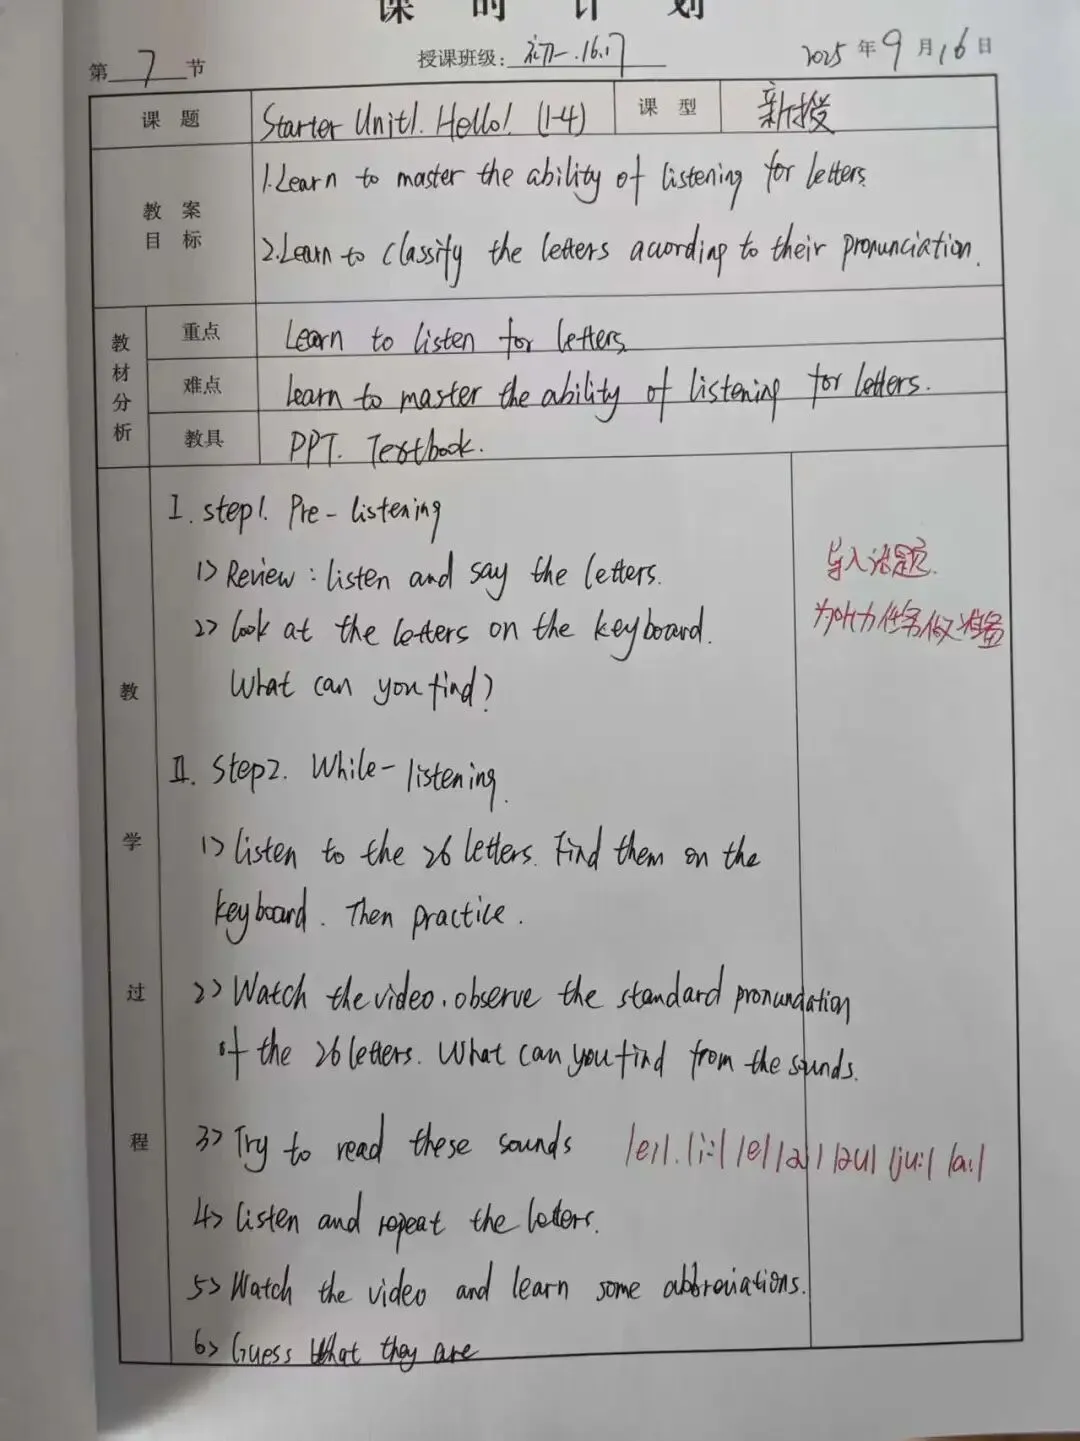 课 时 计 划
第 7 节 授课班级: 初一.16.17 2025 年 9 月 16 日
课 题 Starter Unit1. Hello! (1-4) 课 型 新授
教 案 目 标
1.Learn to master the ability of listening for letters.
2.Learn to classify the letters acording to their pronunciation.
教材分析
重点 Learn to listen for letters.
难点 Learn to master the ability of listening for letters.
教具 PPT. Textbook.
教 学 过 程
I. step1. Pre-listening
1> Review: listen and say the letters. 导入话题.
2> look at the letters on the keyboard. 为听力任务做准备
What can you find?
II. Step2. While-listening.
1> listen to the 26 letters. Find them on the
keyboard. Then practice.
2> Watch the video. observe the standard pronundation
of the 26 letters. What can you find from the sounds.
3> Try to read these sounds /ei/. /i:/ /e/ /ai/ /əu/ /ju:/ /a:/
4> listen and repeat the letters.
5> Watch the video and learn some abbreviations.
6> Guess what they are